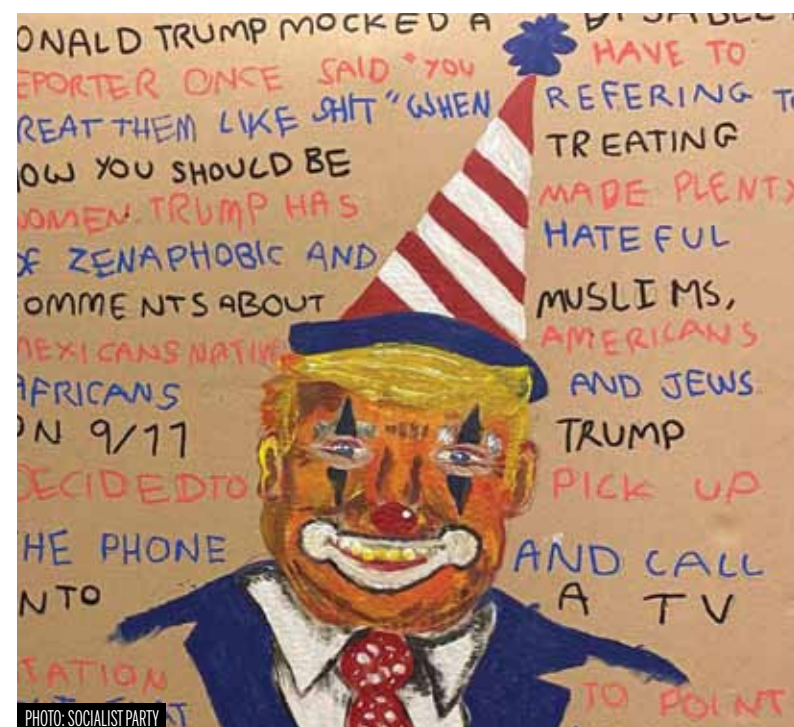 ONALD TRUMP MOCKED A
EPORTER ONCE SAID "YOU HAVE TO
REAT THEM LIKE SHIT" WHEN REFERING
OW YOU SHOULD BE TREATING
OMEN. TRUMP HAS MADE PLENTY
OF ZENAPHOBIC AND HATEFUL
OMMENTS ABOUT MUSLIMS,
MEXICANS NATIVE AMERICANS
AFRICANS AND JEWS.
ON 9/11 TRUMP
DECIDEDTO PICK UP
HE PHONE AND CALL
NTO A TV
TATION TO POINT
PHOTO: SOCIALIST PARTY